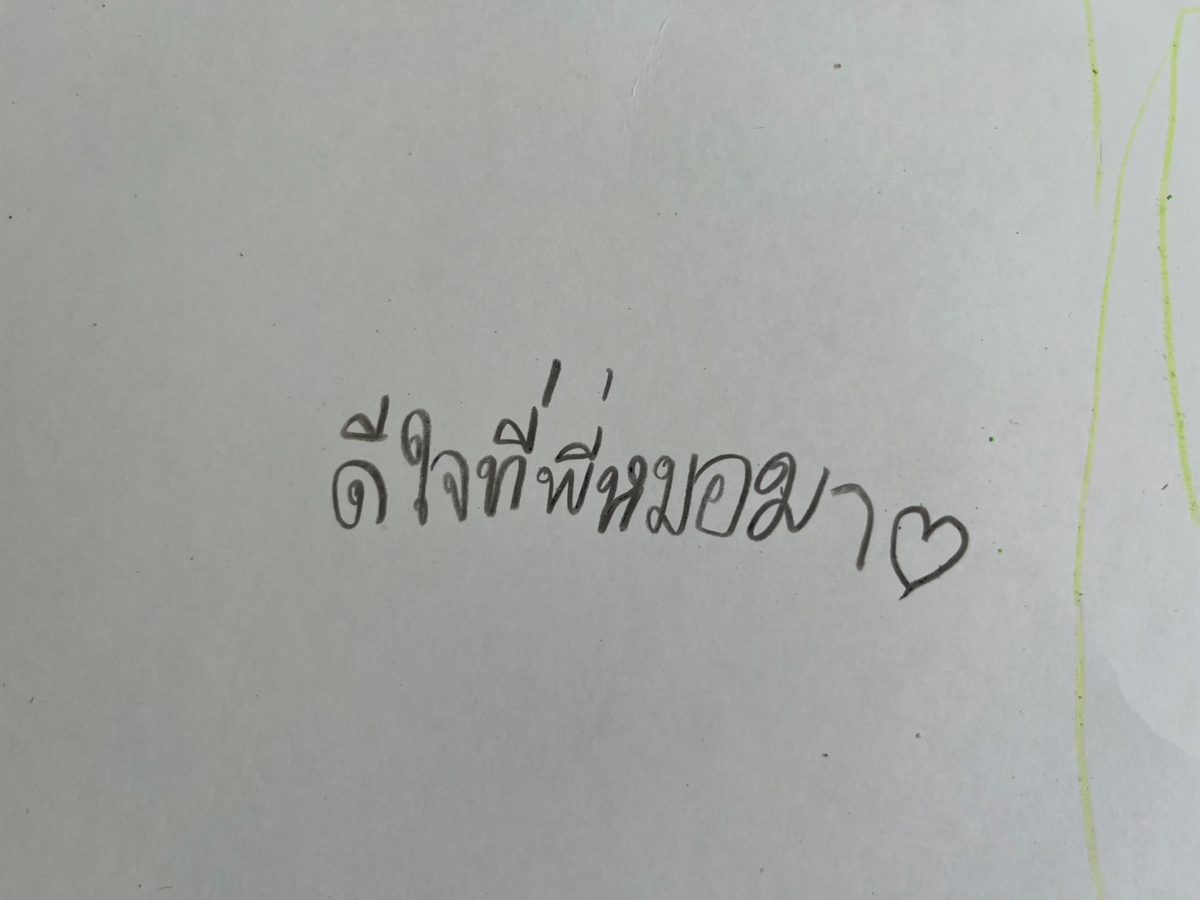 ดีใจที่พี่หมอมา♡